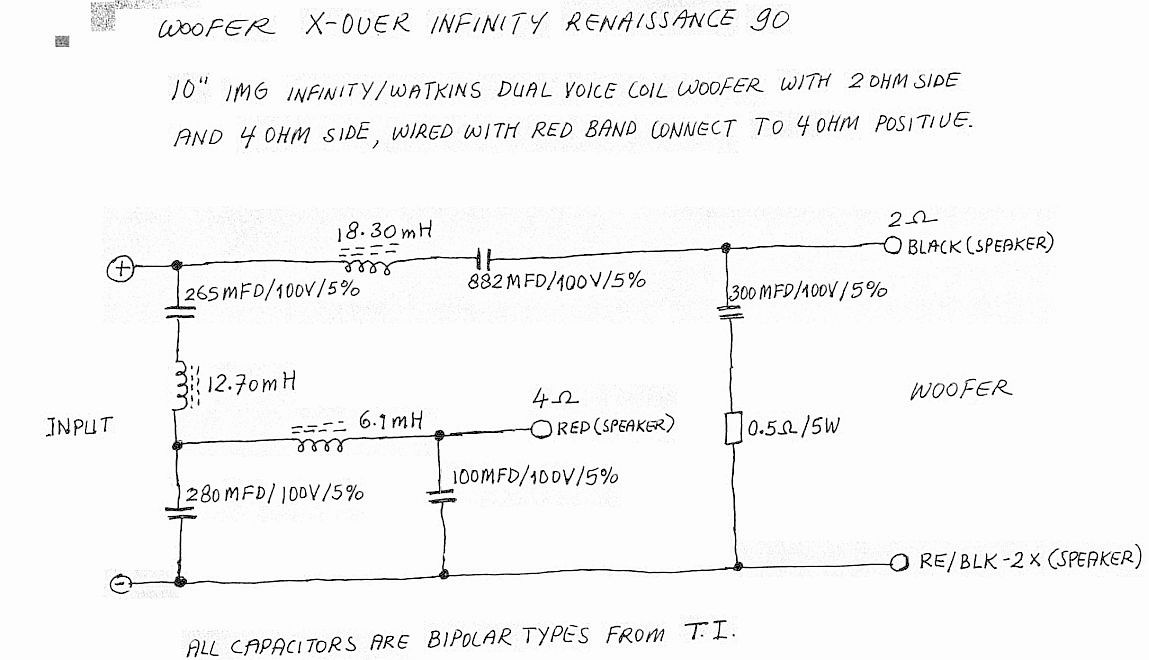 WOOFER X-OVER INFINITY RENAISSANCE 90
10" IMG INFINITY/WATKINS DUAL VOICE COIL WOOFER WITH 2 OHM SIDE
AND 4 OHM SIDE, WIRED WITH RED BAND CONNECT TO 4 OHM POSITIVE.
2Ω
18.30mH
BLACK (SPEAKER)
+
265MFD/100V/5%
882MFD/100V/5%
300MFD/100V/5%
12.70mH
WOOFER
4Ω
INPUT
6.1mH
RED (SPEAKER)
0.5Ω/5W
280MFD/100V/5%
100MFD/100V/5%
-
RE/BLK-2X (SPEAKER)
ALL CAPACITORS ARE BIPOLAR TYPES FROM T.I.